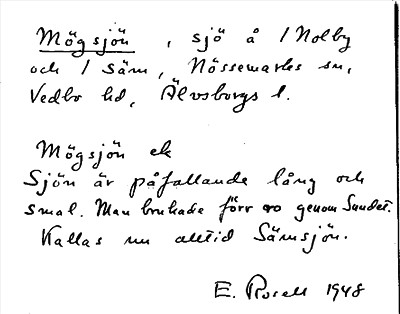 Mögsjön, sjö å 1 Nolby
och 1 Säm, Nössemarks sn,
Vedbo hd, Älvsborgs l.
Mögsjön ek
Sjön är påfallande lång och
smal. Man brukade förr ro genom Sundet.
Kallas nu alltid Sämsjön.
E. Rosell 1948